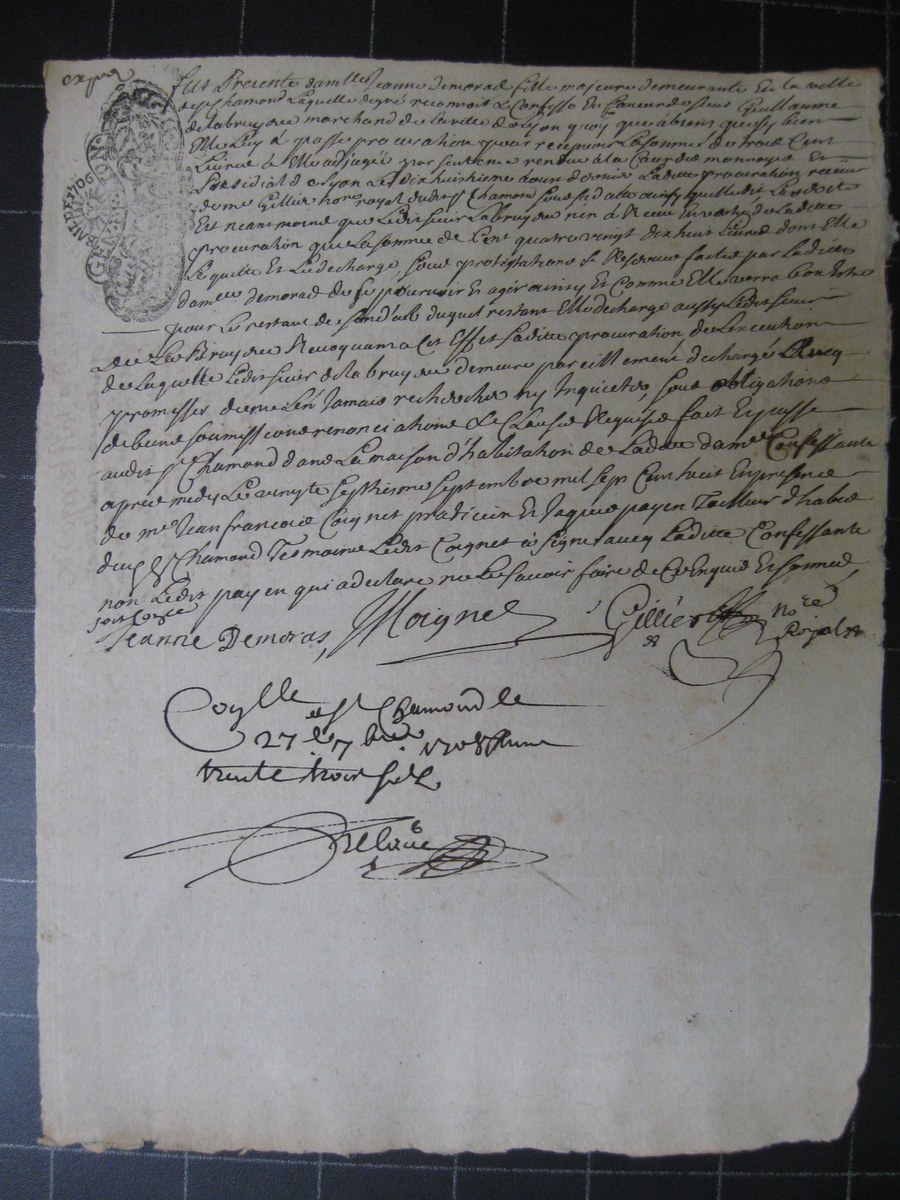 Fut Presente damlle Jeanne demoras fille majeure demeurante en la ville
de St Chamond Laquelle de gré reconnoit & Confesse En faveur de sieur Guillaume
de la bruyere marchand de la ville de Lyon quoy que absent quensuy bien
Elle luy à passe procuration pour recepvoir La somme de trois Cent
Livres à Elle adjugée par sentence rendue a la Cour des monnoyes Et
Presidial de Lyon Le dix huictiesme aoust dernier Ladite procuration receue
de me Gillier nore royal dudit St Chamond soussigné
Est neantmoins que Ledit sieur Labruyere n'en à Receu En vertu de Ladite
procuration que La somme de Cent quatre vingt dix huit Livres dont Elle
Le quitte Et Le decharge, sous protestations & Reserves faites par Ladite
damlle demoras de se pourvoir Et agir ainsy Et Comme Elle verra bon Estre
pour Le restant de duquel restant Elle decharge aussy Ledit sieur
de La Bruyere Revoquant a Cet Effet Ladite procuration de Lexecution
de Laquelle Ledit sieur de la bruyere demeure pareillement dechargé avecq
promesses de ne Len Jamais rechercher ny Inquieter, sous obligations
soumissions renonciations & Clauses Requises fait Et passé
audit St Chamond dans La maison d'habitation de Ladite damlle Confessante
apres midy Le vingt septiesme septembre mil sept Cent huit En presence
de me Jean francois Coignet praticien Et Jaques payen Tailleur d'habis
dudit St Chamond Tesmoins Ledit Coignet à signé avecq Ladite Confessante
non Ledit payen qui a declaré ne Le savoir faire de Ce Enquis Et sommé
Jeanne Demoras, JfCoignet Gillier Nore
Royal
Conlle a St Chamond le
27e 7bre 1708
trente trois sols
GEN DE LYON